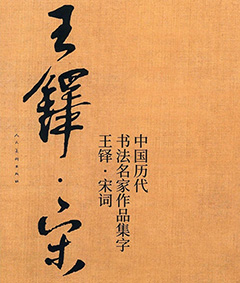 王铎·宋
中国历代
书法名家作品集字
王铎·宋词
人民美术出版社